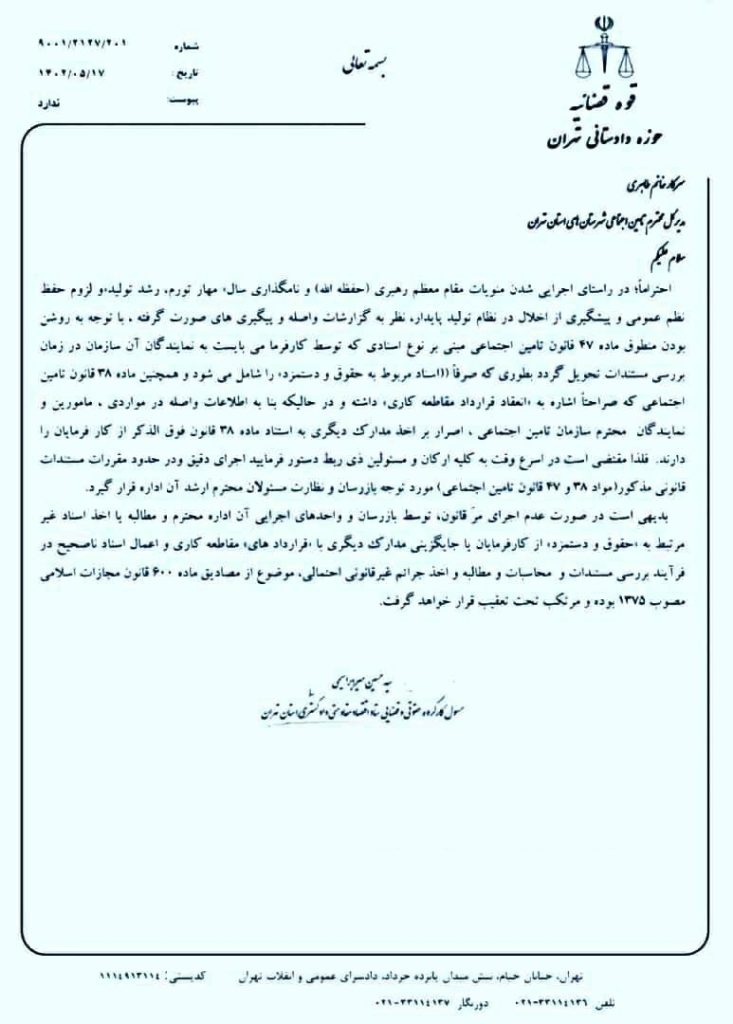 شماره ۹۰۰۱/۲۱۲۷/۲۰۱
تاریخ: ۱۴۰۲/۰۵/۱۷
پیوست: ندارد
بسمه تعالی
قوه قضائیه
حوزه دادستانی تهران
سرکار خانم طاهری
مدیرکل محترم تامین اجتماعی شهرستان های استان تهران
سلام علیکم
احتراماً؛ در راستای اجرایی شدن منویات مقام معظم رهبری (حفظه الله) و نامگذاری سال» مهار تورم، رشد تولید»و لزوم حفظ
نظم عمومی و پیشگیری از اخلال در نظام تولید پایدار، نظر به گزارشات واصله و پیگیری های صورت گرفته ، با توجه به روشن
بودن منطوق ماده ۴۷ قانون تامین اجتماعی مبنی بر نوع اسنادی که توسط کارفرما می بایست به نمایندگان آن سازمان در زمان
بررسی مستندات تحویل گردد بطوری که صرفاً ((اسناد مربوط به حقوق و دستمزد» را شامل می شود و همچنین ماده ۳۸ قانون تامین
اجتماعی که صراحتاً اشاره به «انعقاد قرارداد مقاطعه کاری» داشته و در حالیکه بنا به اطلاعات واصله در مواردی ، مامورین و
نمایندگان محترم سازمان تامین اجتماعی ، اصرار بر اخذ مدارک دیگری به استناد ماده ۳۸ قانون فوق الذکر از کار فرمایان را
دارند. فلذا مقتضی است در اسرع وقت به کلیه ارکان و مسئولین ذی ربط دستور فرمایید اجرای دقیق ودر حدود مقررات مستندات
قانونی مذکور(مواد ۳۸ و ۴۷ قانون تامین اجتماعی) مورد توجه بازرسان و نظارت مسئولان محترم ارشد آن اداره قرار گیرد.
بدیهی است در صورت عدم اجرای مرّ قانون، توسط بازرسان و واحدهای اجرایی آن اداره محترم و مطالبه یا اخذ اسناد غیر
مرتبط به «حقوق و دستمزد» از کارفرمایان یا جایگزینی مدارک دیگری با «قرارداد های» مقاطعه کاری و اعمال اسناد ناصحیح در
فرآیند بررسی مستندات و محاسبات و مطالبه و اخذ جرائم غیرقانونی احتمالی، موضوع از مصادیق ماده ۶۰۰ قانون مجازات اسلامی
مصوب ۱۳۷۵ بوده و مرتکب تحت تعقیب قرار خواهد گرفت.
سید حسین میرابراهیمی
مسئول کارگروه حقوقی و قضایی ستاد اقتصاد مقاومتی دادگستری استان تهران
تهران، خیابان خیام، نبش میدان پانزده خرداد، دادسرای عمومی و انقلاب تهران کدپستی: ۱۱۱۴۹۱۳۱۱۴
تلفن ۳۳۱۱۴۱۳۶-۰۲۱ دورنگار ۳۳۱۱۴۱۳۷-۰۲۱